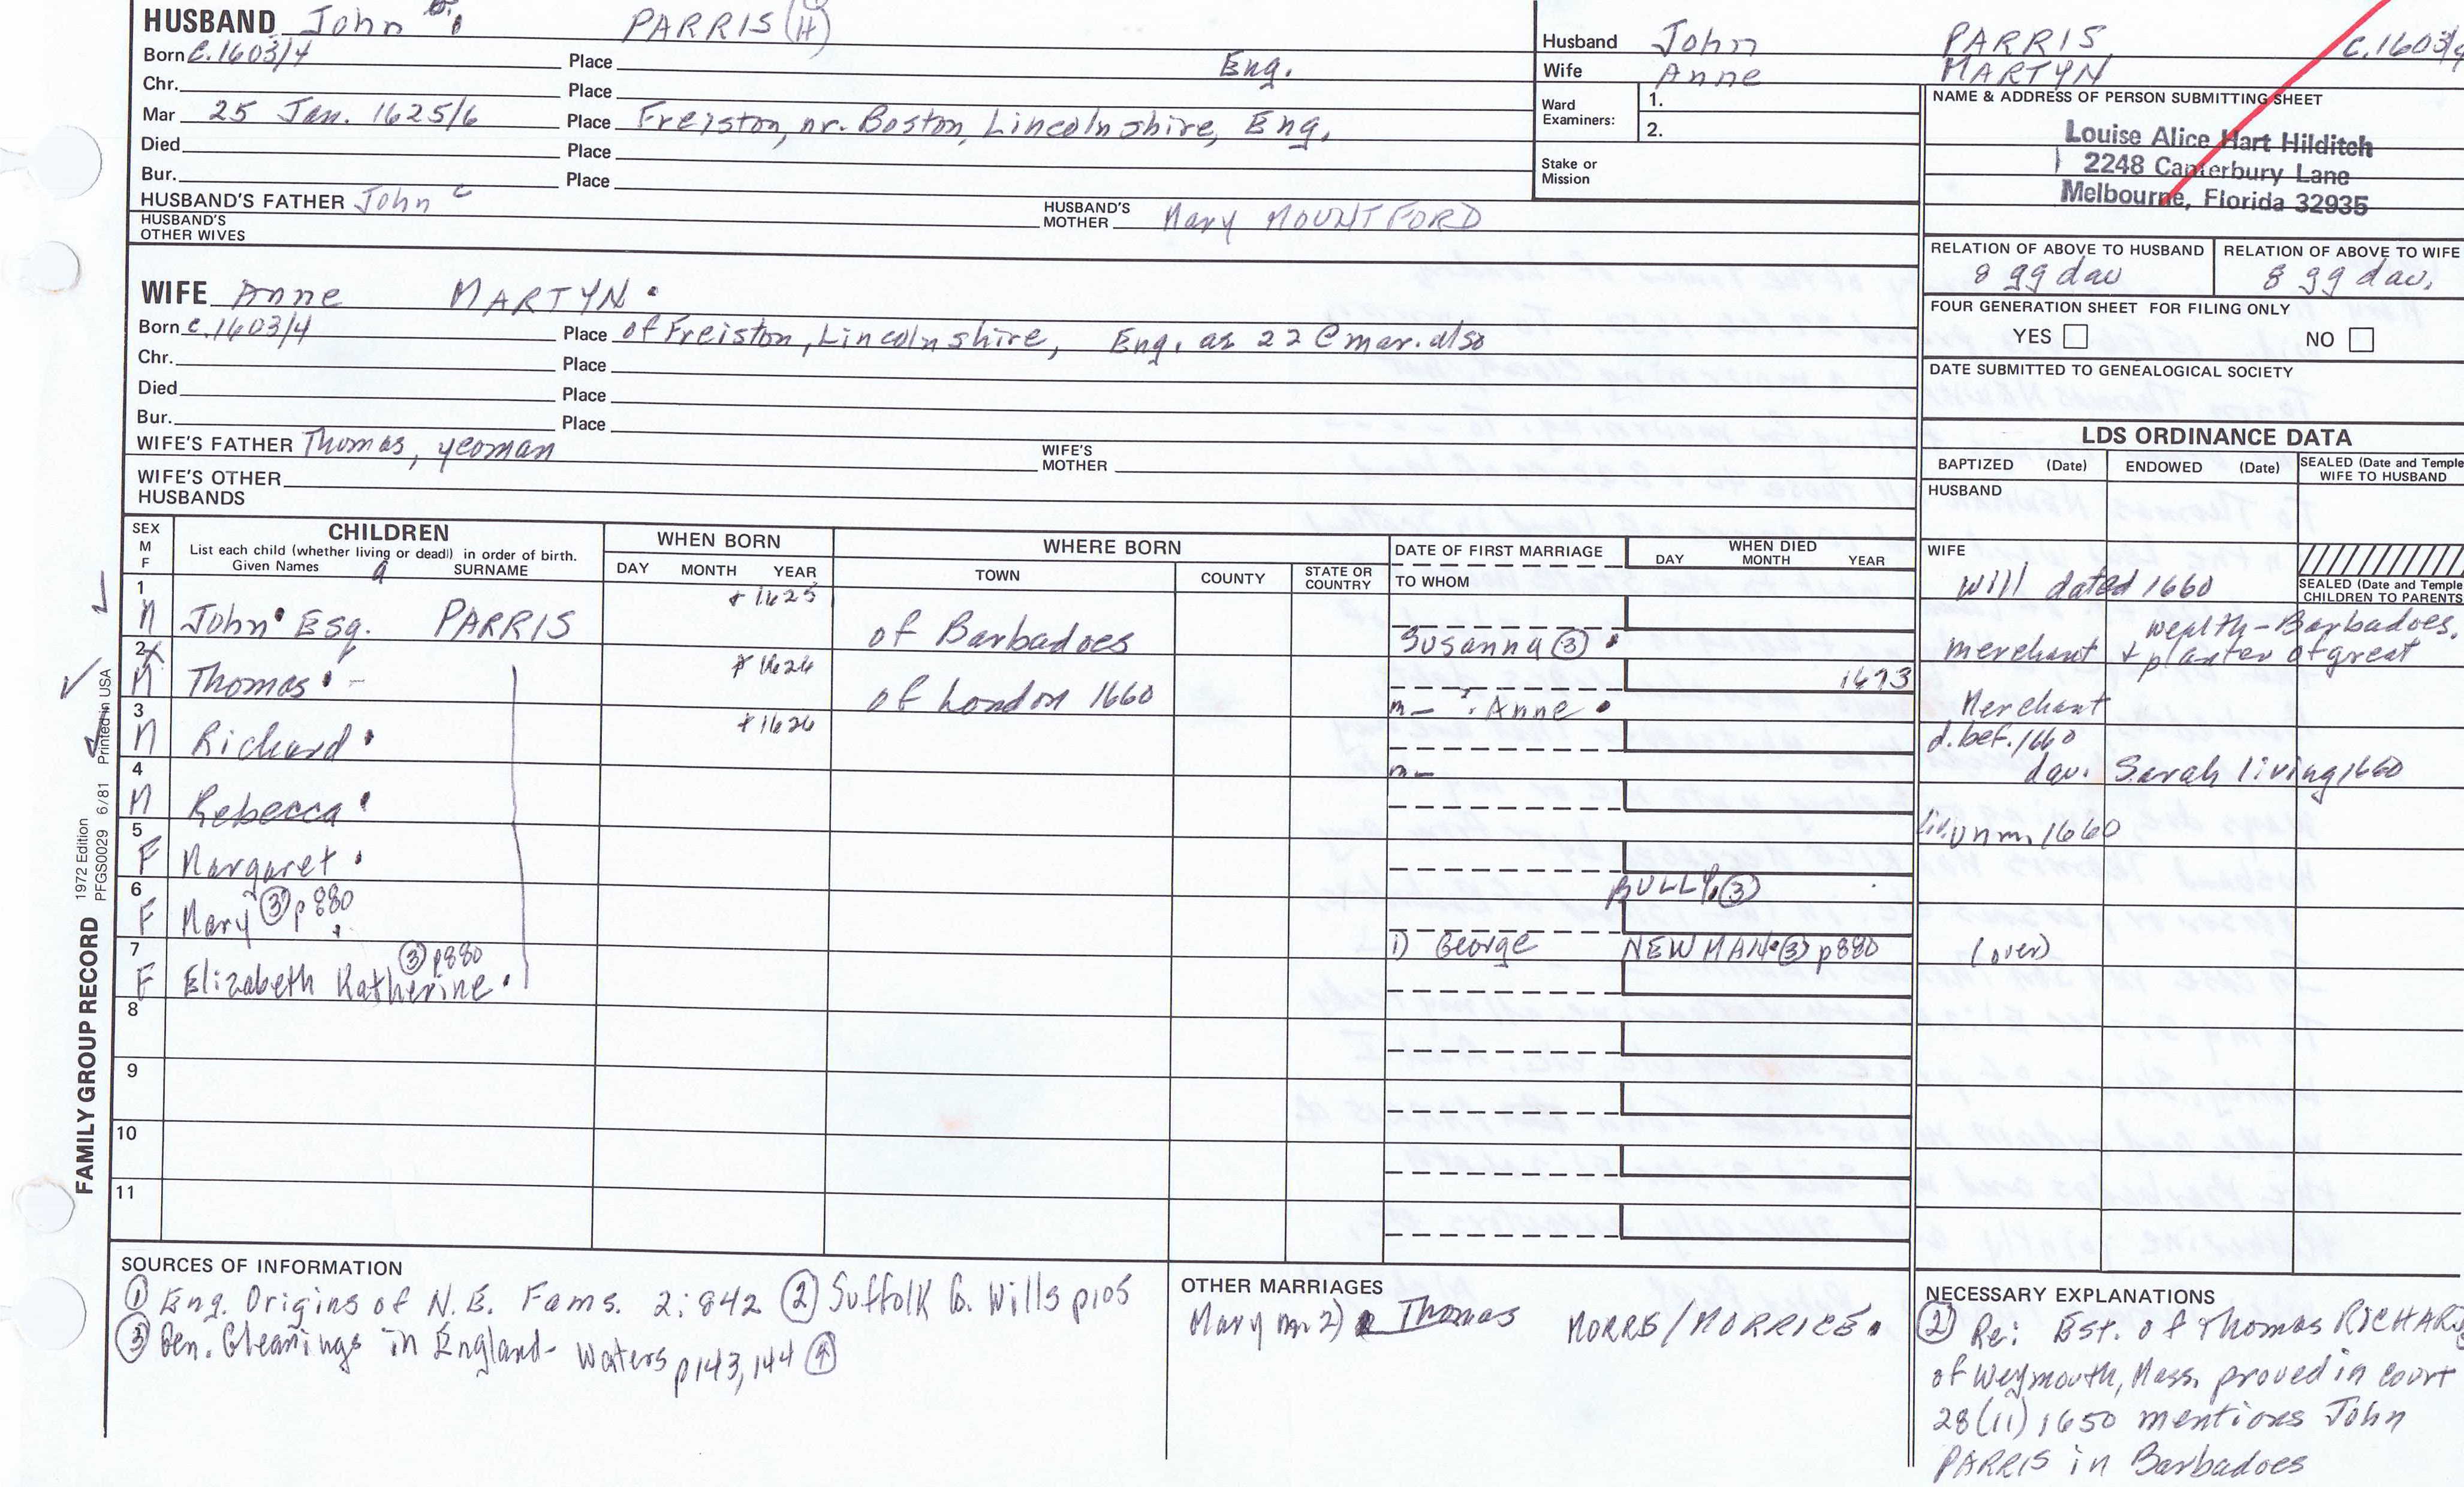 HUSBAND John PARRIS (H)
Born c.1603/4 Place Eng.
Chr. Place
Mar 25 Jan. 1625/6 Place Freiston, nr. Boston, Lincolnshire, Eng.
Died Place
Bur. Place
HUSBAND'S FATHER John HUSBAND'S MOTHER Mary MOUNTFORD
HUSBAND'S OTHER WIVES
Husband John PARRIS c.1603/4
Wife Anne MARTYN
Ward Examiners: 1.
2.
Stake or Mission
NAME & ADDRESS OF PERSON SUBMITTING SHEET
Louise Alice Hart Hilditch
2248 Canterbury Lane
Melbourne, Florida 32935
RELATION OF ABOVE TO HUSBAND RELATION OF ABOVE TO WIFE
8 gg dau 8 gg dau.
FOUR GENERATION SHEET FOR FILING ONLY
YES NO
DATE SUBMITTED TO GENEALOGICAL SOCIETY
WIFE Anne MARTYN
Born c.1603/4 Place of Freiston, Lincolnshire, Eng. as 22 @ mar. also
Chr. Place
Died Place
Bur. Place
WIFE'S FATHER Thomas, yeoman WIFE'S MOTHER
WIFE'S OTHER HUSBANDS
LDS ORDINANCE DATA
BAPTIZED (Date) ENDOWED (Date) SEALED (Date and Temple) WIFE TO HUSBAND
HUSBAND
WIFE
SEALED (Date and Temple) CHILDREN TO PARENTS
SEX M F CHILDREN WHEN BORN WHERE BORN DATE OF FIRST MARRIAGE WHEN DIED
List each child (whether living or dead) in order of birth.
Given Names SURNAME DAY MONTH YEAR TOWN COUNTY STATE OR COUNTRY TO WHOM DAY MONTH YEAR
will dated 1660
1 M John Esq. PARRIS + 1625 of Barbadoes Susanna (3) merchant + planter of great wealth - Barbadoes.
2 M Thomas + 1626 of London 1660 m- Anne 1673 Merchant
3 M Richard + 1626 m- d. bef. 1660
dau. Sarah living 1660
4 M Rebecca liv. unm. 1660
5 F Margaret
6 F Mary (3) p 880 BULLY (3)
1) George NEWMAN (3) p880 (over)
7 F Elizabeth Katherine (3) p880
8
9
10
11
FAMILY GROUP RECORD 1972 Edition PFGS0029 6/81 Printed in USA
SOURCES OF INFORMATION
(1) Eng. Origins of N.E. Fams. 2:842 (2) Suffolk Co. Wills p105
(3) Gen. Gleanings in England- Waters p143, 144 (4)
OTHER MARRIAGES
Mary m. 2) Thomas MORRE/MORRICE.
NECESSARY EXPLANATIONS
(2) Re: Est. of Thomas RICHARDS
of Weymouth, Mass. proved in court
28(11)1650 mentions John
PARRIS in Barbadoes